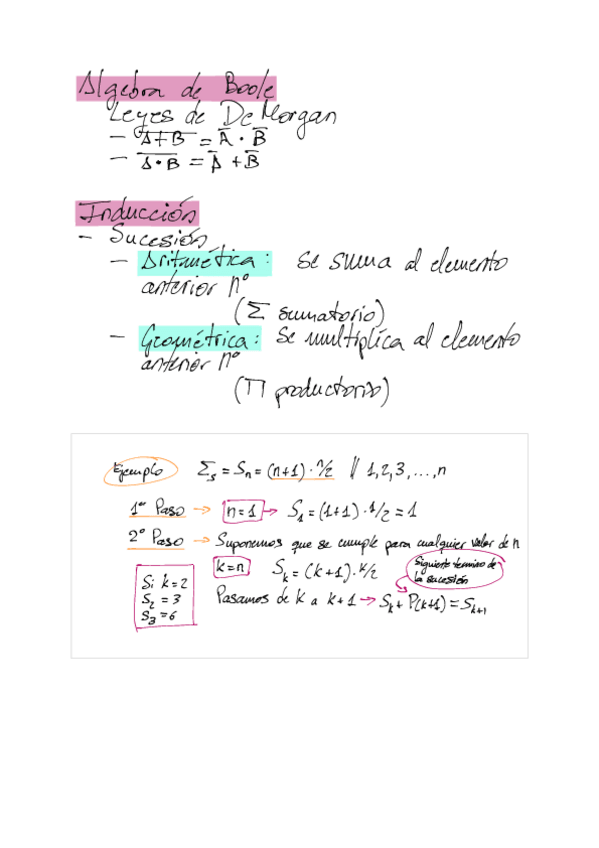 Algebra de Boole
Leyes de De Morgan
- \overline{A+B} = \overline{A} · \overline{B}
- \overline{A·B} = \overline{A} + \overline{B}
Inducción
- Sucesión
- Aritmética: Se suma al elemento
anterior nº
(Σ sumatorio)
- Geométrica: Se multiplica al elemento
anterior nº
(Π productorio)
Ejemplo Σs = Sn = (n+1) · n/2 // 1,2,3, ..., n
1er Paso → n=1 → S1 = (1+1) · 1/2 = 1
2º Paso → Suponemos que se cumple para cualquier valor de n
k=n Sk = (k+1) · k/2
Siguiente termino de
la sucesión
Si k=2
S2 = 3
S3 = 6
Pasamos de k a k+1 → Sk + P(k+1) = Sk+1